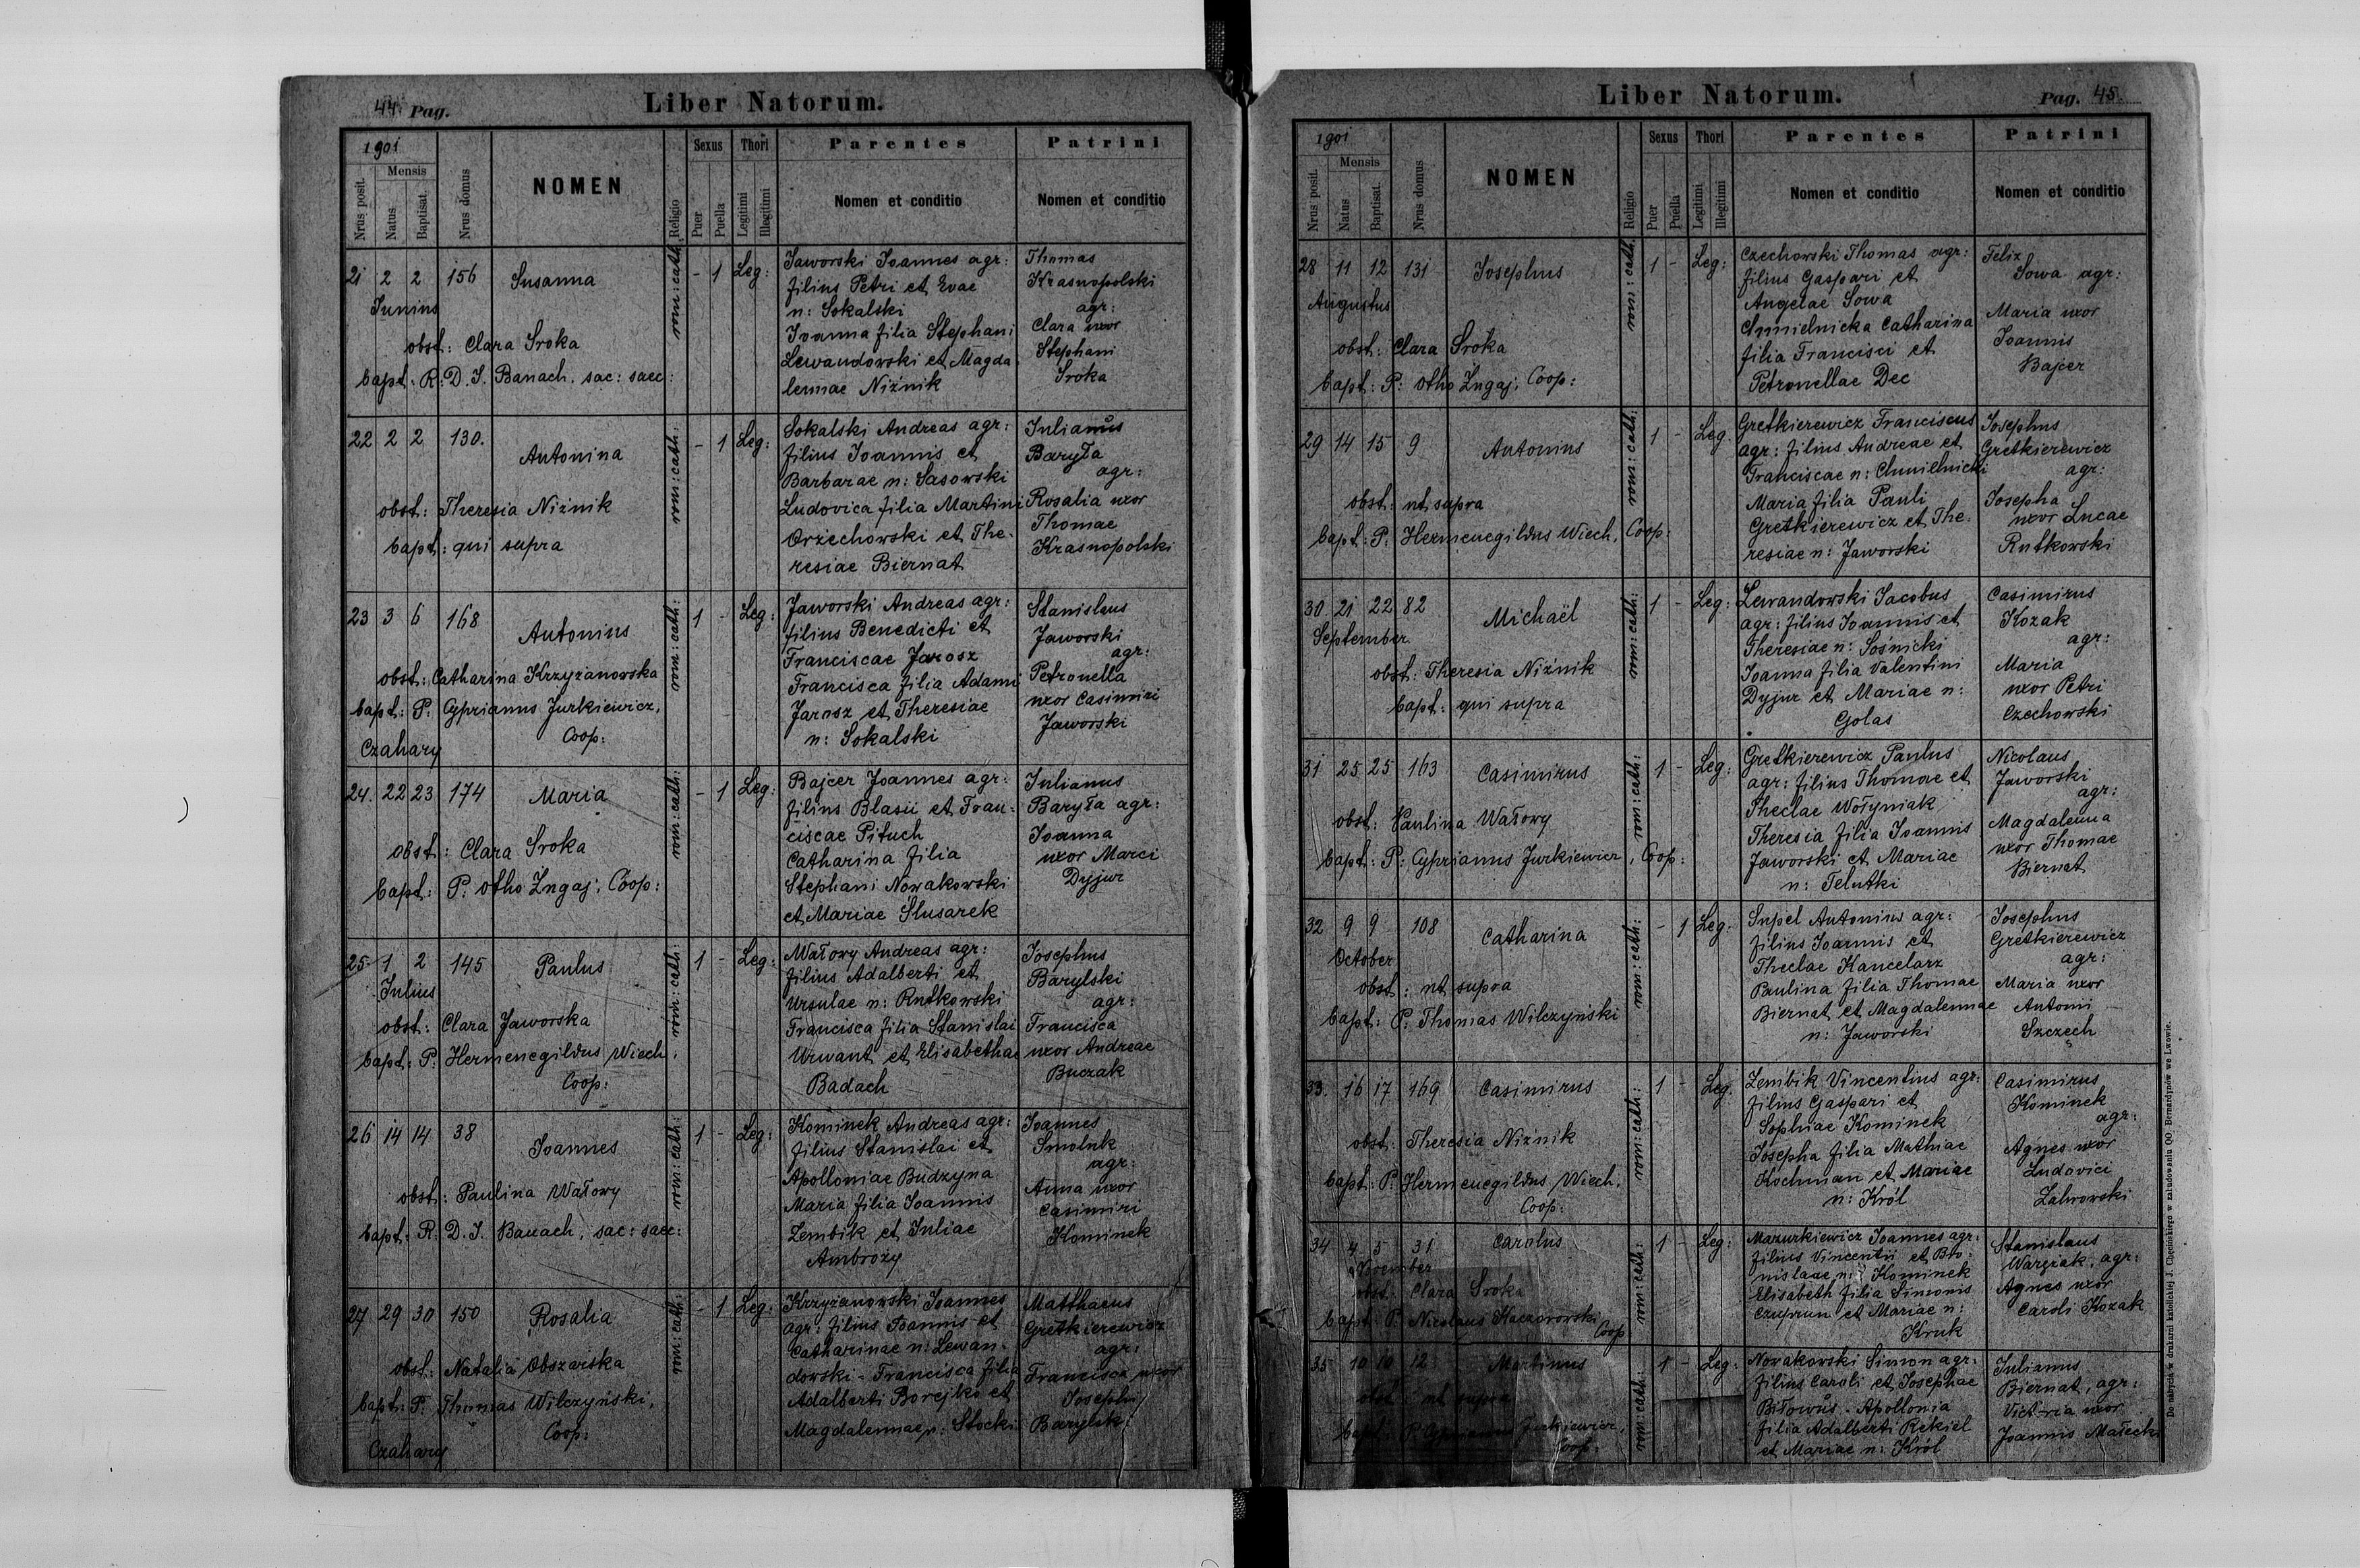 44 Pag.
Liber Natorum.
1901
Nrus posit.
Mensis
Natus
Baptisat.
Nrus domus
NOMEN
Religio
Sexus
Puer
Puella
Thori
Legitimi
Illegitimi
Parentes
Nomen et conditio
Patrini
Nomen et conditio
21 2 2 156 Susanna
Junius
obst: Clara Sroka
bapt. R. D. J. Banach. sac: saec:
rom: cath:
- 1 Leg:
Jaworski Joannes agr:
filius Petri et Evae
n: Sokalski
Joanna filia Stephani
Lewandowski et Magda
lennae Niźnik
Thomas
Krasnopolski
agr:
Clara uxor
Stephani
Sroka
22 2 2 130. Antonina
obst: Theresia Niźnik
bapt: qui supra
rom: cath:
- 1 Leg:
Sokalski Andreas agr:
filius Joannis et
Barbarae n: Sasowski
Ludovica filia Martini
Orzechowski et The-
resiae Biernat
Julianus
Baryła
agr:
Rosalia uxor
Thomae
Krasnopolski
23 3 6 168 Antonius
obst: Catharina Krzyżanowska
bapt: P. Cyprianus Jurkiewicz,
Coop:
Czahary
rom: cath:
1 - Leg:
Jaworski Andreas agr:
filius Benedicti et
Franciscae Jarosz
Francisca filia Adami
Jarosz et Theresiae
n: Sokalski
Stanislaus
Jaworski
agr:
Petronella
uxor Casimiri
Jaworski
24. 22 23 174 Maria
obst: Clara Sroka
bapt: P. Otho Żugaj, Coop:
rom: cath:
- 1 Leg:
Bajcer Joannes agr:
filius Blasii et Fran-
ciscae Pituch
Catharina filia
Stephani Nowakowski
et Mariae Slusarek
Julianus
Baryła agr:
Joanna
uxor Marci
Dyjur
25 1 2 145 Paulus
Julius
obst: Clara Jaworska
bapt: P. Hermenegildus Wiech,
Coop:
rom: cath:
1 - Leg:
Watowy Andreas agr:
filius Adalberti et
Ursulae n: Rutkowski
Francisca filia Stanislai
Urwant et Elisabethae
Badach
Josephus
Barylski
agr:
Francisca
uxor Andreae
Buczak
26 14 14 38 Joannes
obst: Paulina Watowy
bapt. R. D. J. Banach, sac: saec:
rom: cath:
1 - Leg:
Kominek Andreas agr:
filius Stanislai et
Apolloniae Budzyna
Maria filia Joannis
Zembik et Juliae
Ambroży
Joannes
Smoluk
agr:
Anna uxor
Casimiri
Kominek
27 29 30 150 Rosalia
obst: Natalia Obszarska
bapt: P. Thomas Wilczyński,
Coop:
Czahary
rom: cath:
- 1 Leg:
Krzyżanowski Joannes
agr: filius Joannis et
Catharinae n: Lewan-
dowski - Francisca filia
Adalberti Borejko et
Magdalennae n: Stocki
Matthaeus
Gretkierewicz
agr:
Francisca uxor
Josephi
Barylski
Liber Natorum.
Pag. 45.
1901
Nrus posit.
Mensis
Natus
Baptisat.
Nrus domus
NOMEN
Religio
Sexus
Puer
Puella
Thori
Legitimi
Illegitimi
Parentes
Nomen et conditio
Patrini
Nomen et conditio
28 11 12 131 Josephus
Augustus
obst: Clara Sroka
bapt: P: Otho Żugaj, Coop:
rom: cath:
1 - Leg:
Czechowski Thomas agr:
filius Gaspari et
Angelae Sowa
Chmielnicka Catharina
filia Francisci et
Petronellae Dec
Felix
Sowa agr:
Maria uxor
Joannis
Bajcer
29 14 15 9 Antonius
obst: ut supra
bapt: P. Hermenegildus Wiech, Coop:
rom: cath:
1 - Leg.
Gretkierewicz Franciscus
agr: filius Andreae et
Franciscae n: Chmielnicki
Maria filia Pauli
Gretkierewicz et The-
resiae n: Jaworski
Josephus
Gretkierewicz
agr:
Josepha
uxor Lucae
Rutkowski
30. 21 22 82 Michaël
September
obst: Theresia Niźnik
bapt: qui supra
rom: cath:
1 - Leg:
Lewandowski Jacobus
agr: filius Joannis et
Theresiae n: Sośnicki
Joanna filia Valentini
Dyjur et Mariae n:
Golas
Casimirus
Kozak
agr:
Maria
uxor Petri
Czechowski
31 25 25 163 Casimirus
obst: Paulina Watowy
bapt: P: Cyprianus Jurkiewicz, Coop:
rom: cath:
1 - Leg:
Gretkierewicz Paulus
agr: filius Thomae et
Theclae Wołyniak
Theresia filia Joannis
Jaworski et Mariae
n: Telutki
Nicolaus
Jaworski
agr:
Magdalenna
uxor Thomae
Biernat
32 9 9 108 Catharina
October
obst: ut supra
bapt: P. Thomas Wilczyński
rom: cath:
- 1 Leg:
Supel Antonius agr:
filius Joannis et
Theclae Kancelarz
Paulina filia Thomae
Biernat et Magdalennae
n: Jaworski
Josephus
Gretkierewicz
agr:
Maria uxor
Antoni
Szczech
33. 16 17 169 Casimirus
obst: Theresia Niźnik
bapt: P. Hermenegildus Wiech,
Coop:
rom: cath:
1 - Leg.
Zembik Vincentius agr:
filius Gaspari et
Sophiae Kominek
Josepha filia Mathiae
Kochman et Mariae
n: Król
Casimirus
Kominek
agr:
Agnes uxor
Ludovici
Zalwowski
34 4 5 31 Carolus
November
obst: Clara Sroka
bapt: P. Nicolaus Kaczorowski
Coop
rom: cath:
1 - Leg:
Mazurkiewicz Joannes agr:
filius Vincentii et Bro-
nislaae n: Kominek
Elisabeth filia Simonis
Czuprun et Mariae n:
Kruk
Stanislaus
Wargiak, agr:
Agnes uxor
Caroli Kozak
35 10 10 12 Martinus
obst: ut supra
bapt: P. Cyprianus Jurkiewicz,
Coop:
rom: cath:
1 - Leg:
Nowakowski Simon agr:
filius Caroli et Josephae
Biłowus - Apollonia
filia Adalberti Rekiel
et Mariae n: Król
Julianus
Biernat, agr:
Victoria uxor
Joannis Małecki
Do nabycia w drukarni katolickiej J. Chęcińskiego w zabudowaniu OO. Bernardynów we Lwowie.